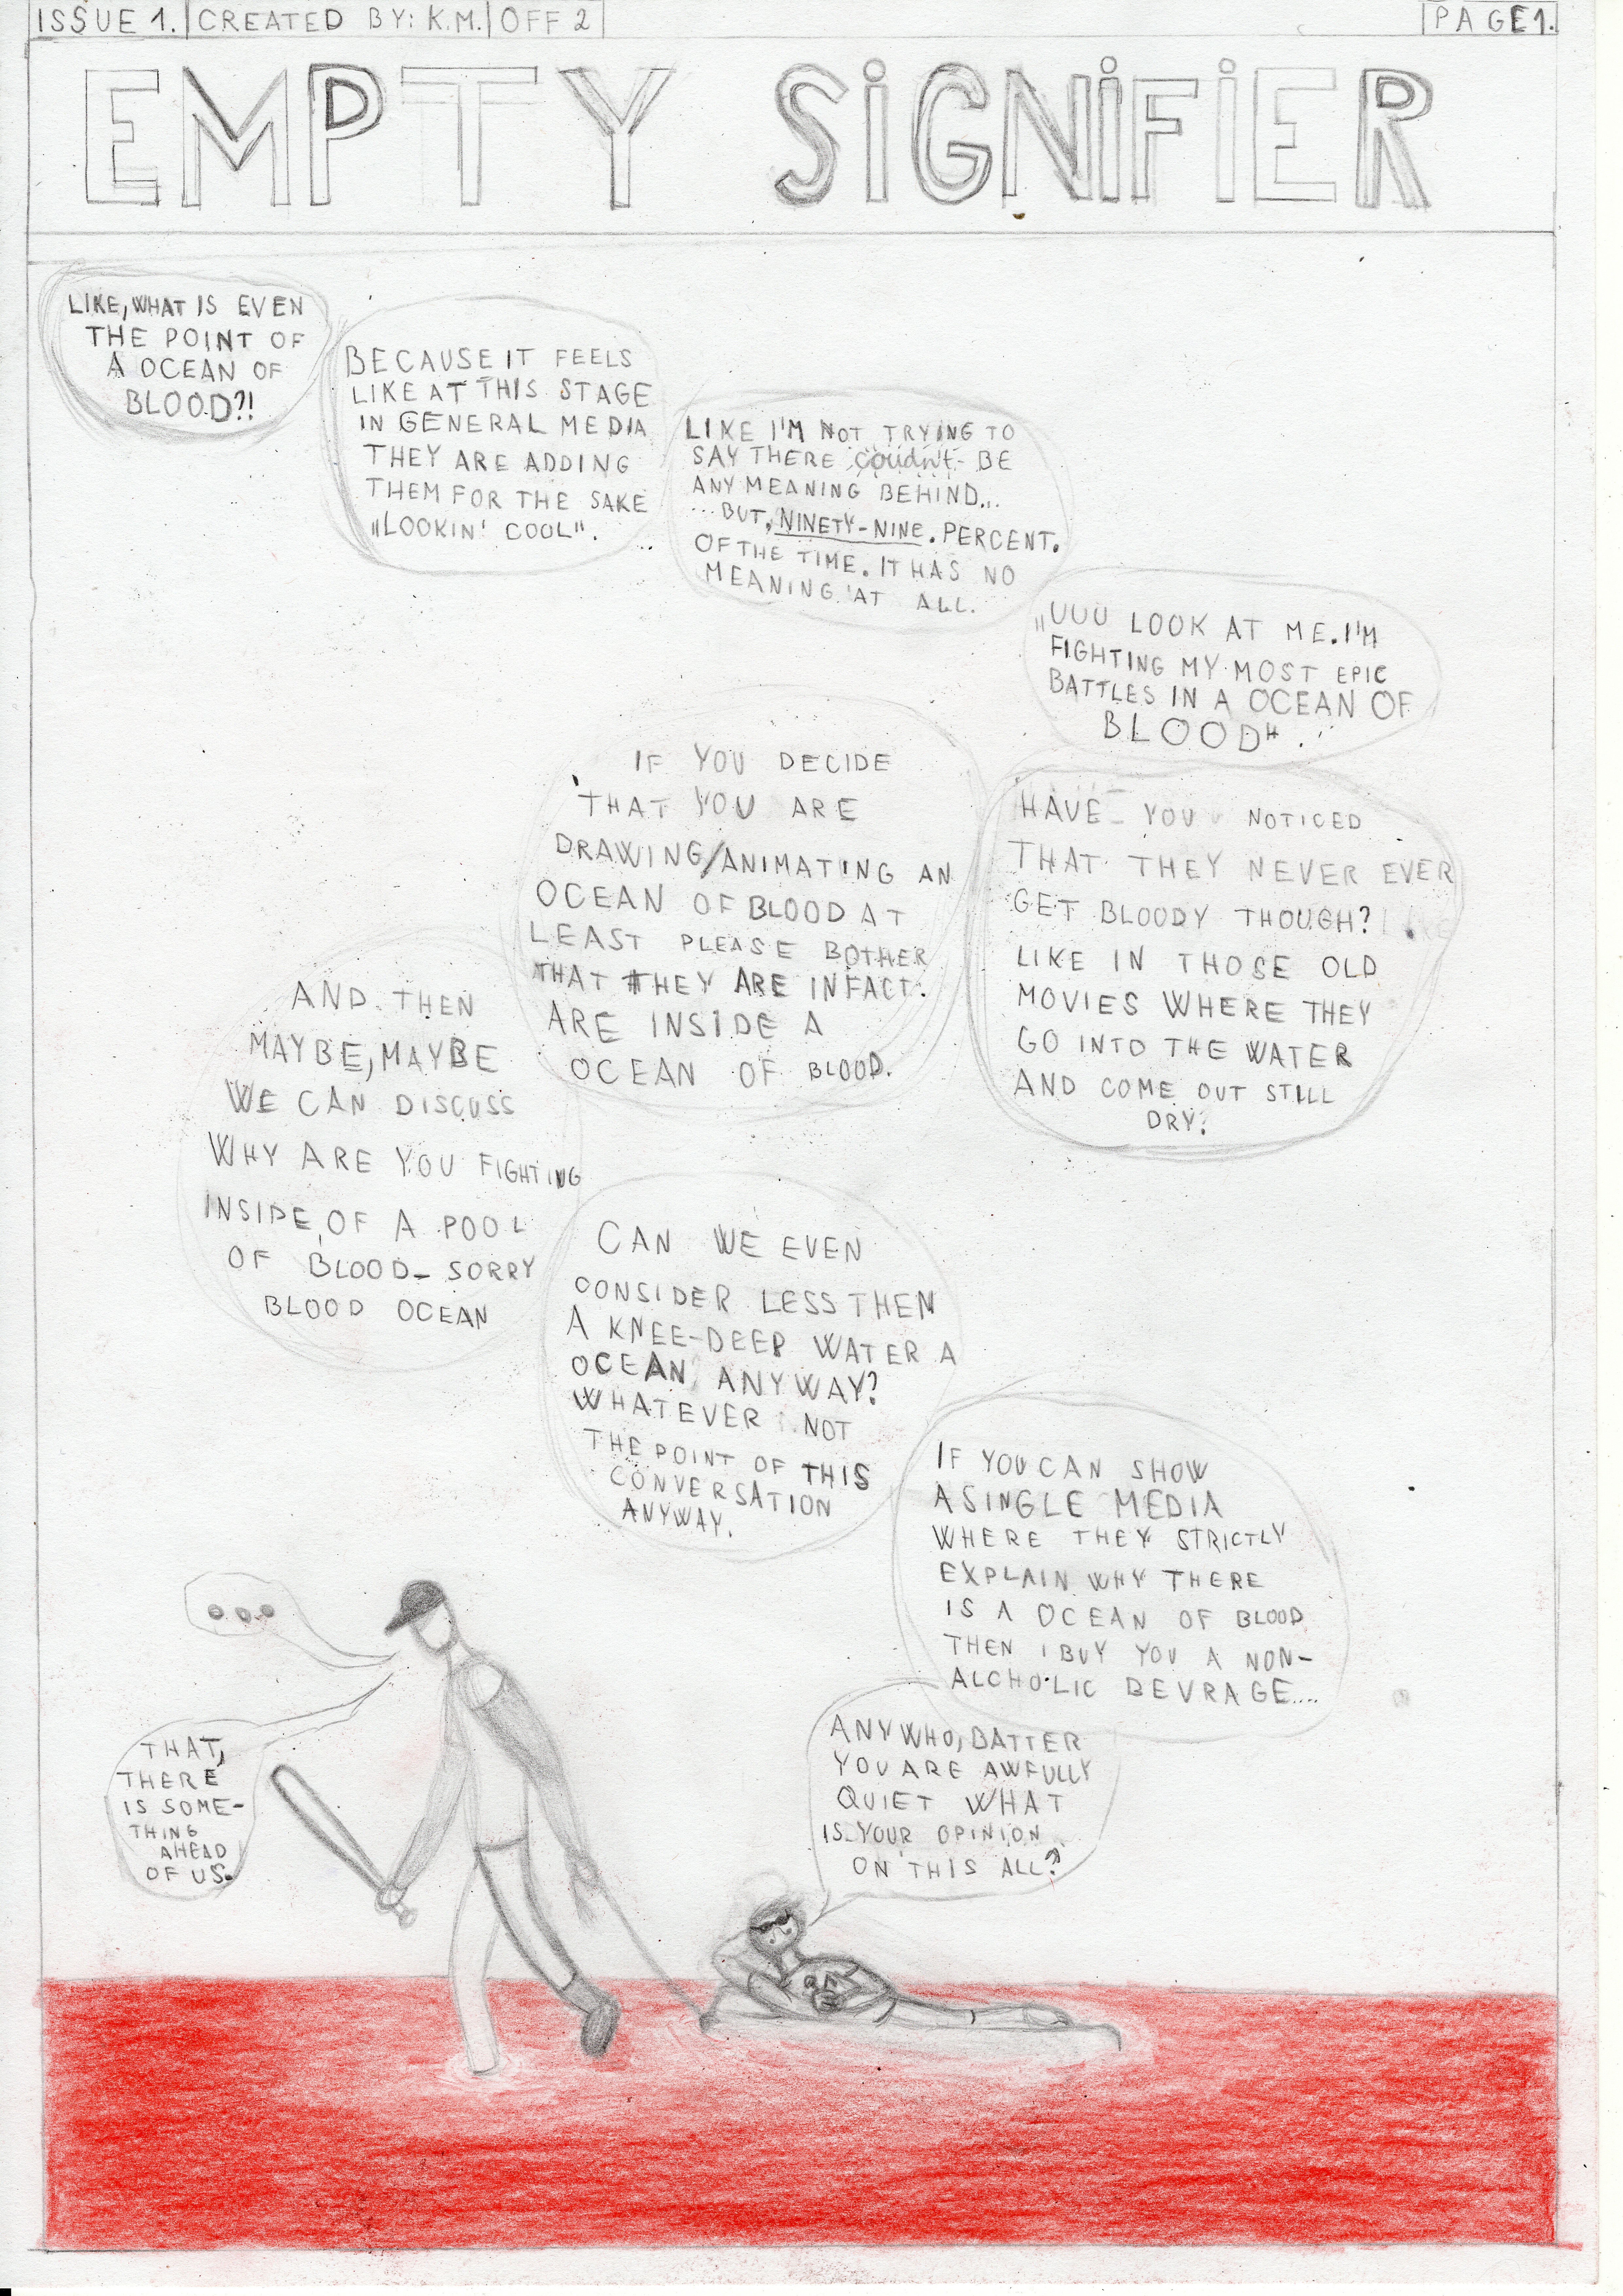 ISSUE 1. CREATED BY: K.M. OFF 2 PAGE 1.
EMPTY SiGNiFiER
LIKE, WHAT IS EVEN
THE POINT OF
A OCEAN OF
BLOOD?!
BECAUSE IT FEELS
LIKE AT THIS STAGE
IN GENERAL MEDIA
THEY ARE ADDING
THEM FOR THE SAKE
„LOOKIN' COOL".
LIKE I'M NOT TRYING TO
SAY THERE coudn't BE
ANY MEANING BEHIND...
...BUT, NINETY-NINE. PERCENT.
OF THE TIME. IT HAS NO
MEANING AT ALL.
„UUU LOOK AT ME. I'M
FIGHTING MY MOST EPIC
BATTLES IN A OCEAN OF
BLOOD".
HAVE YOU NOTICED
THAT THEY NEVER EVER
GET BLOODY THOUGH?
LIKE IN THOSE OLD
MOVIES WHERE THEY
GO INTO THE WATER
AND COME OUT STILL
DRY?
IF YOU DECIDE
THAT YOU ARE
DRAWING/ANIMATING AN
OCEAN OF BLOOD AT
LEAST PLEASE BOTHER
THAT THEY ARE INFACT.
ARE INSIDE A
OCEAN OF BLOOD.
AND THEN
MAYBE, MAYBE
WE CAN DISCUSS
WHY ARE YOU FIGHTING
INSIDE OF A POOL
OF BLOOD- SORRY
BLOOD OCEAN
CAN WE EVEN
CONSIDER LESS THEN
A KNEE-DEEP WATER A
OCEAN ANYWAY?
WHATEVER NOT
THE POINT OF THIS
CONVERSATION
ANYWAY.
IF YOU CAN SHOW
A SINGLE MEDIA
WHERE THEY STRICTLY
EXPLAIN WHY THERE
IS A OCEAN OF BLOOD
THEN I BUY YOU A NON-
ALCHOLIC BEVRAGE....
ANYWHO, BATTER
YOU ARE AWFULLY
QUIET WHAT
IS YOUR OPINION
ON THIS ALL?
...
THAT,
THERE
IS SOME-
THING
AHEAD
OF US.